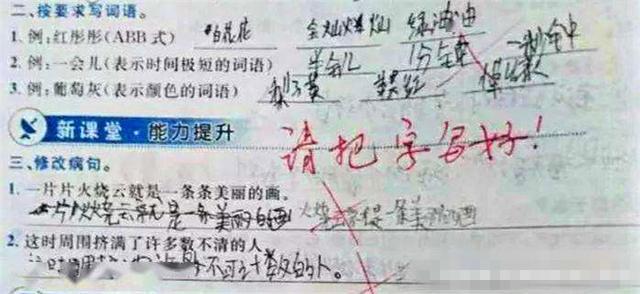 二、按要求写词语。
1. 例：红彤彤（ABB 式） 白花花 金灿灿 绿油油
2. 例：一会儿（表示时间极短的词语） 半会儿 1分钟 1秒钟
3. 例：葡萄灰（表示颜色的词语）
新课堂·能力提升
请把字写好！
三、修改病句。
1. 一片片火烧云就是一条条美丽的画。
一片火烧云就是一条美丽的画 火烧云就是一条美丽的画
2. 这时周围挤满了许多数不清的人。
不可计数的人。